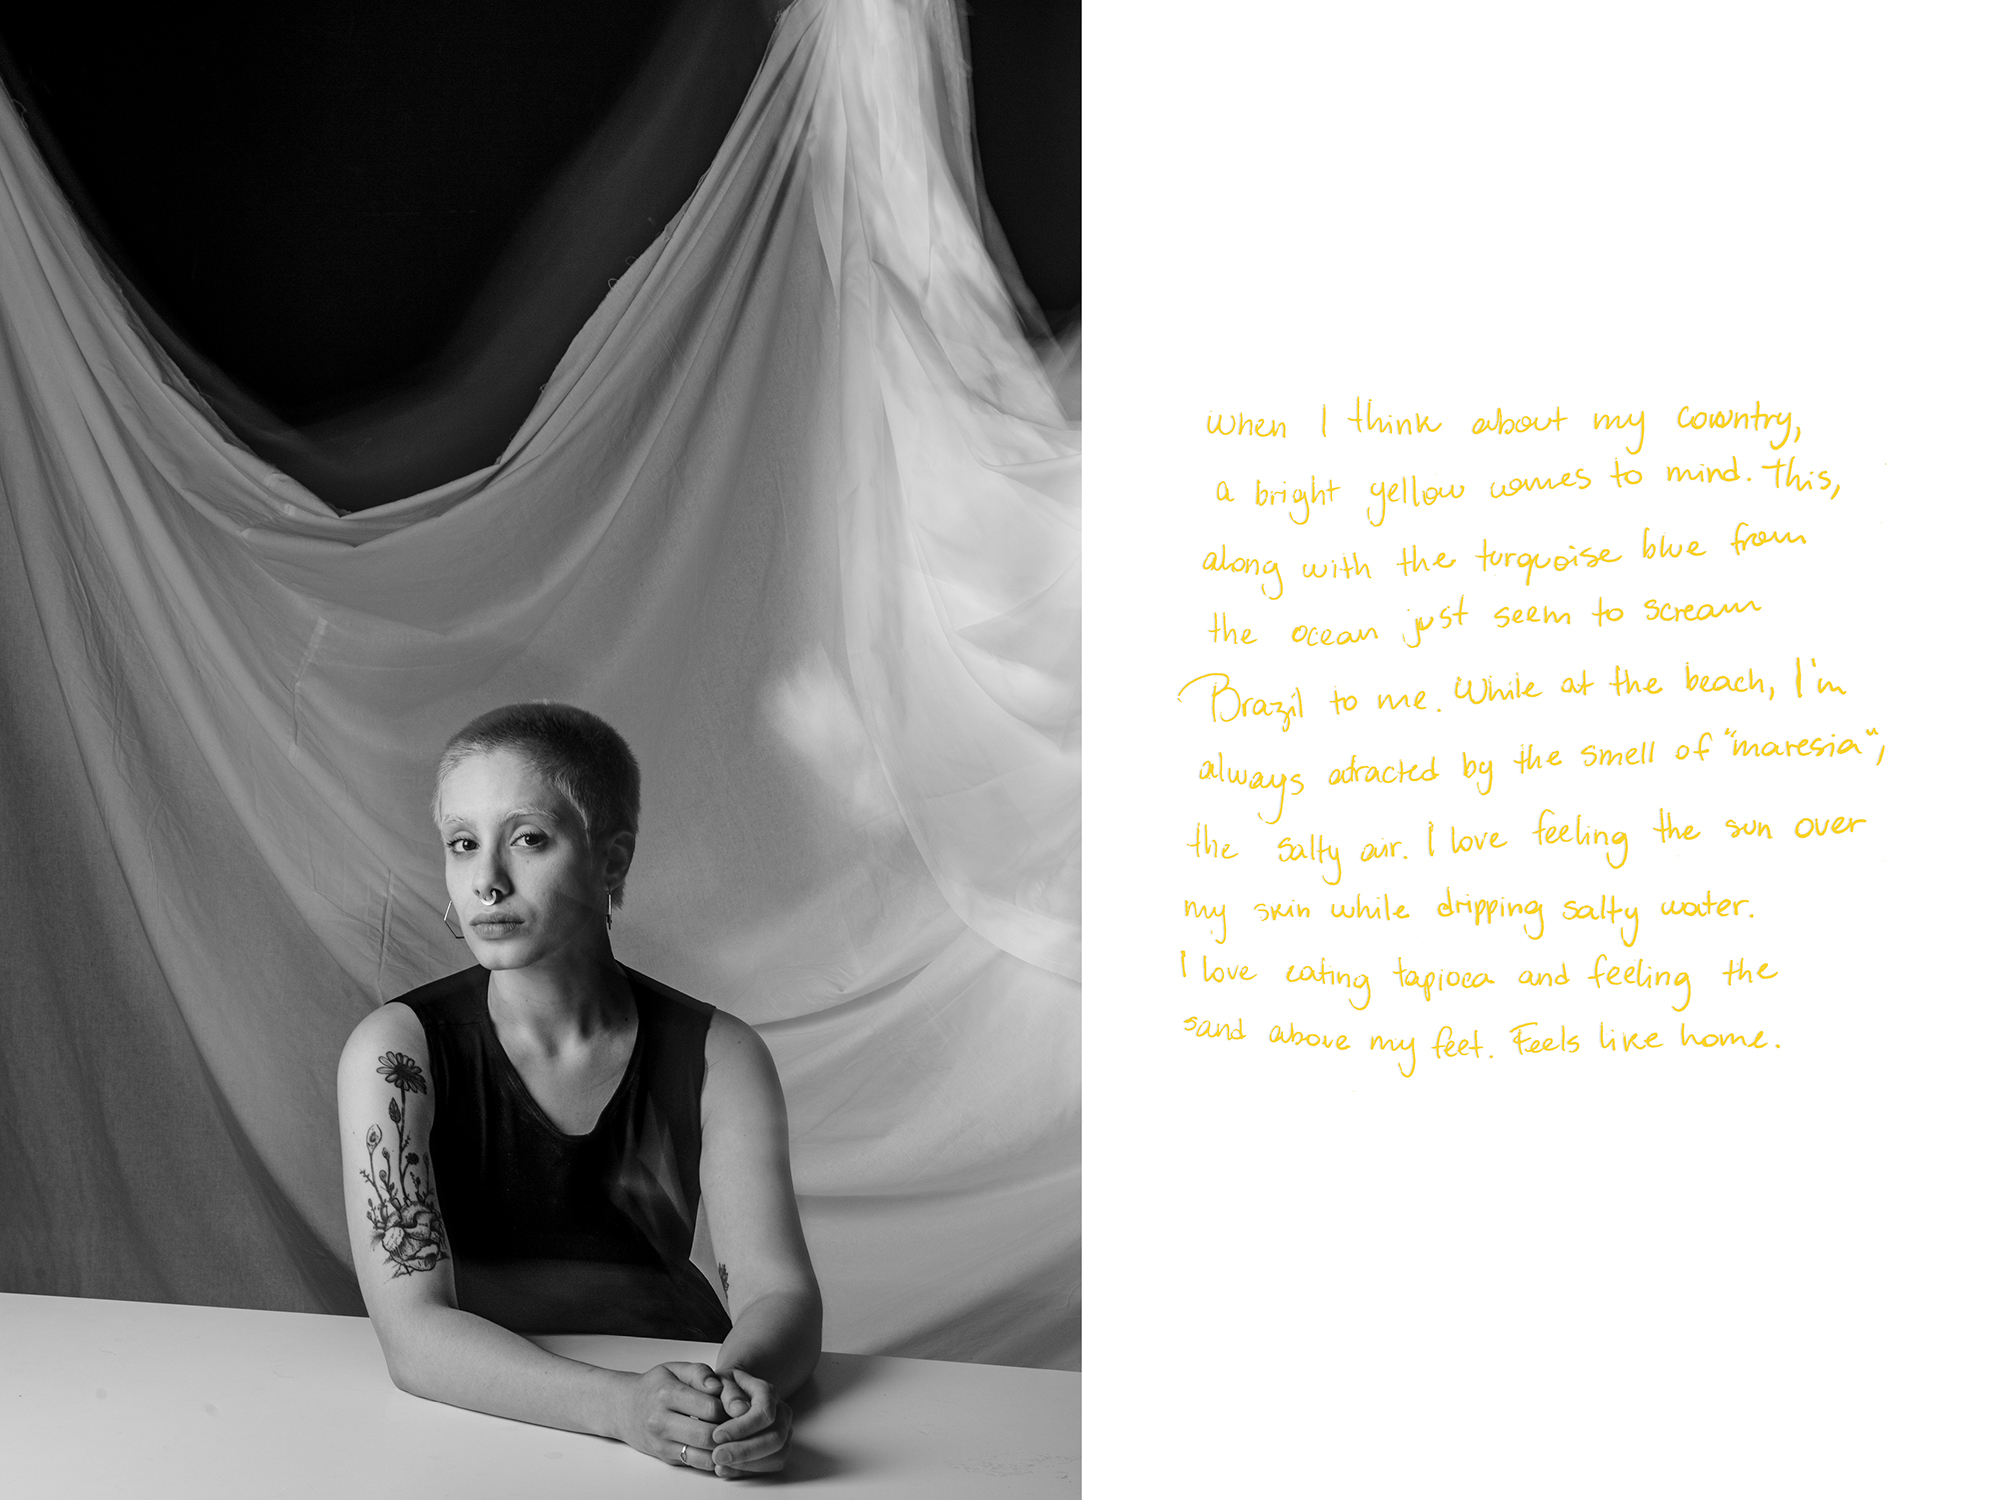 When I think about my country,
a bright yellow comes to mind. This,
along with the turquoise blue from
the ocean just seem to scream
Brazil to me. While at the beach, I'm
always atracted by the smell of "maresia",
the salty air. I love feeling the sun over
my skin while dripping salty water.
I love eating tapioca and feeling the
sand above my feet. Feels like home.